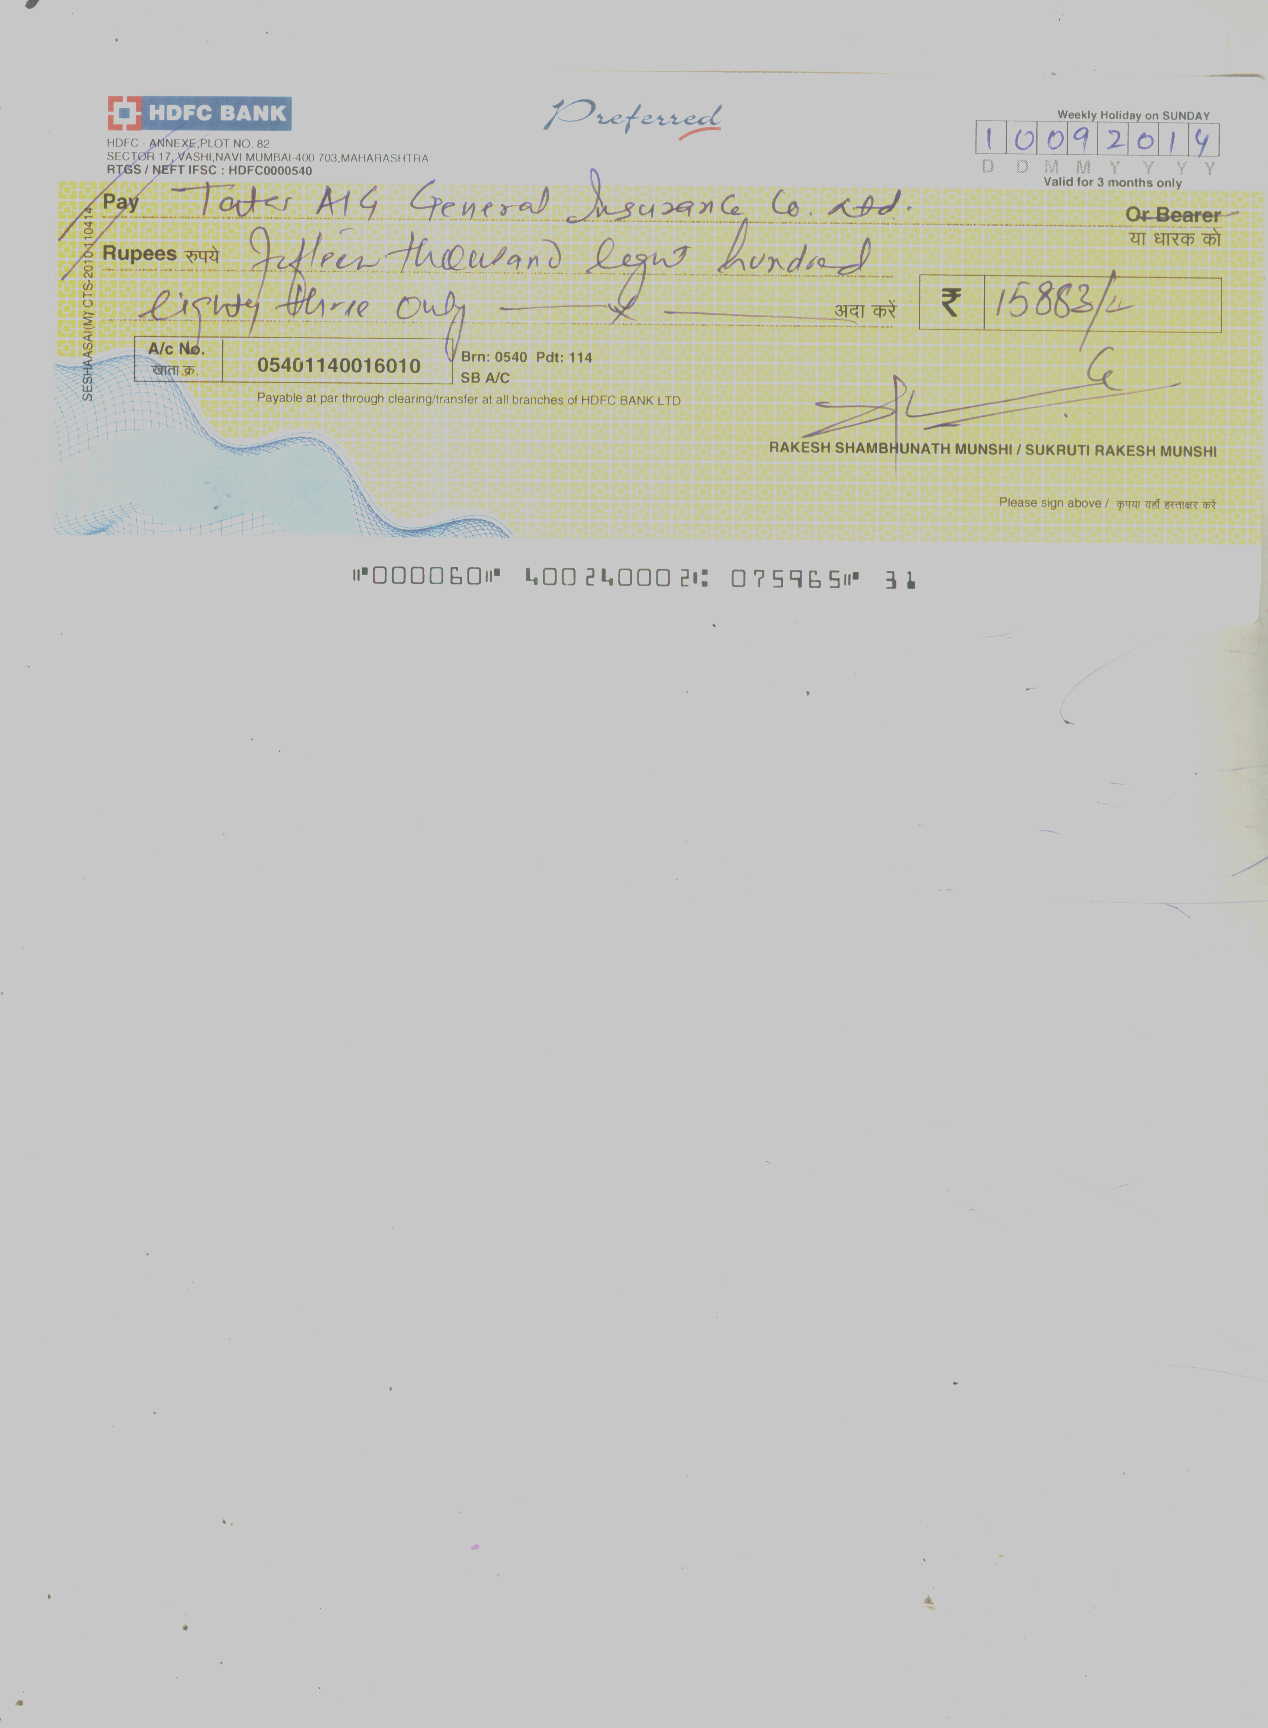 HDFC BANK
Preferred
HDFC - ANNEXE,PLOT NO. 82
SECTOR 17, VASHI,NAVI MUMBAI-400 703,MAHARASHTRA
RTGS / NEFT IFSC : HDFC0000540
Weekly Holiday on SUNDAY
1 0 0 9 2 0 1 4
D D M M Y Y Y Y
Valid for 3 months only
Pay Tata AIG General Insurance Co. Ltd.
Or Bearer
या धारक को
Rupees रुपये Fifteen thousand hundred
Eighty three only अदा करें ₹ 15883/-
A/c No. खाता क्र. 05401140016010
Brn: 0540 Pdt: 114
SB A/C
Payable at par through clearing/transfer at all branches of HDFC BANK LTD
RAKESH SHAMBHUNATH MUNSHI / SUKRUTI RAKESH MUNSHI
Please sign above / कृपया यहाँ हस्ताक्षर करें
SESHAASAI(M)/ CTS-2010-110414
⑈000060⑈ 400240002⑆ 075965⑈ 31